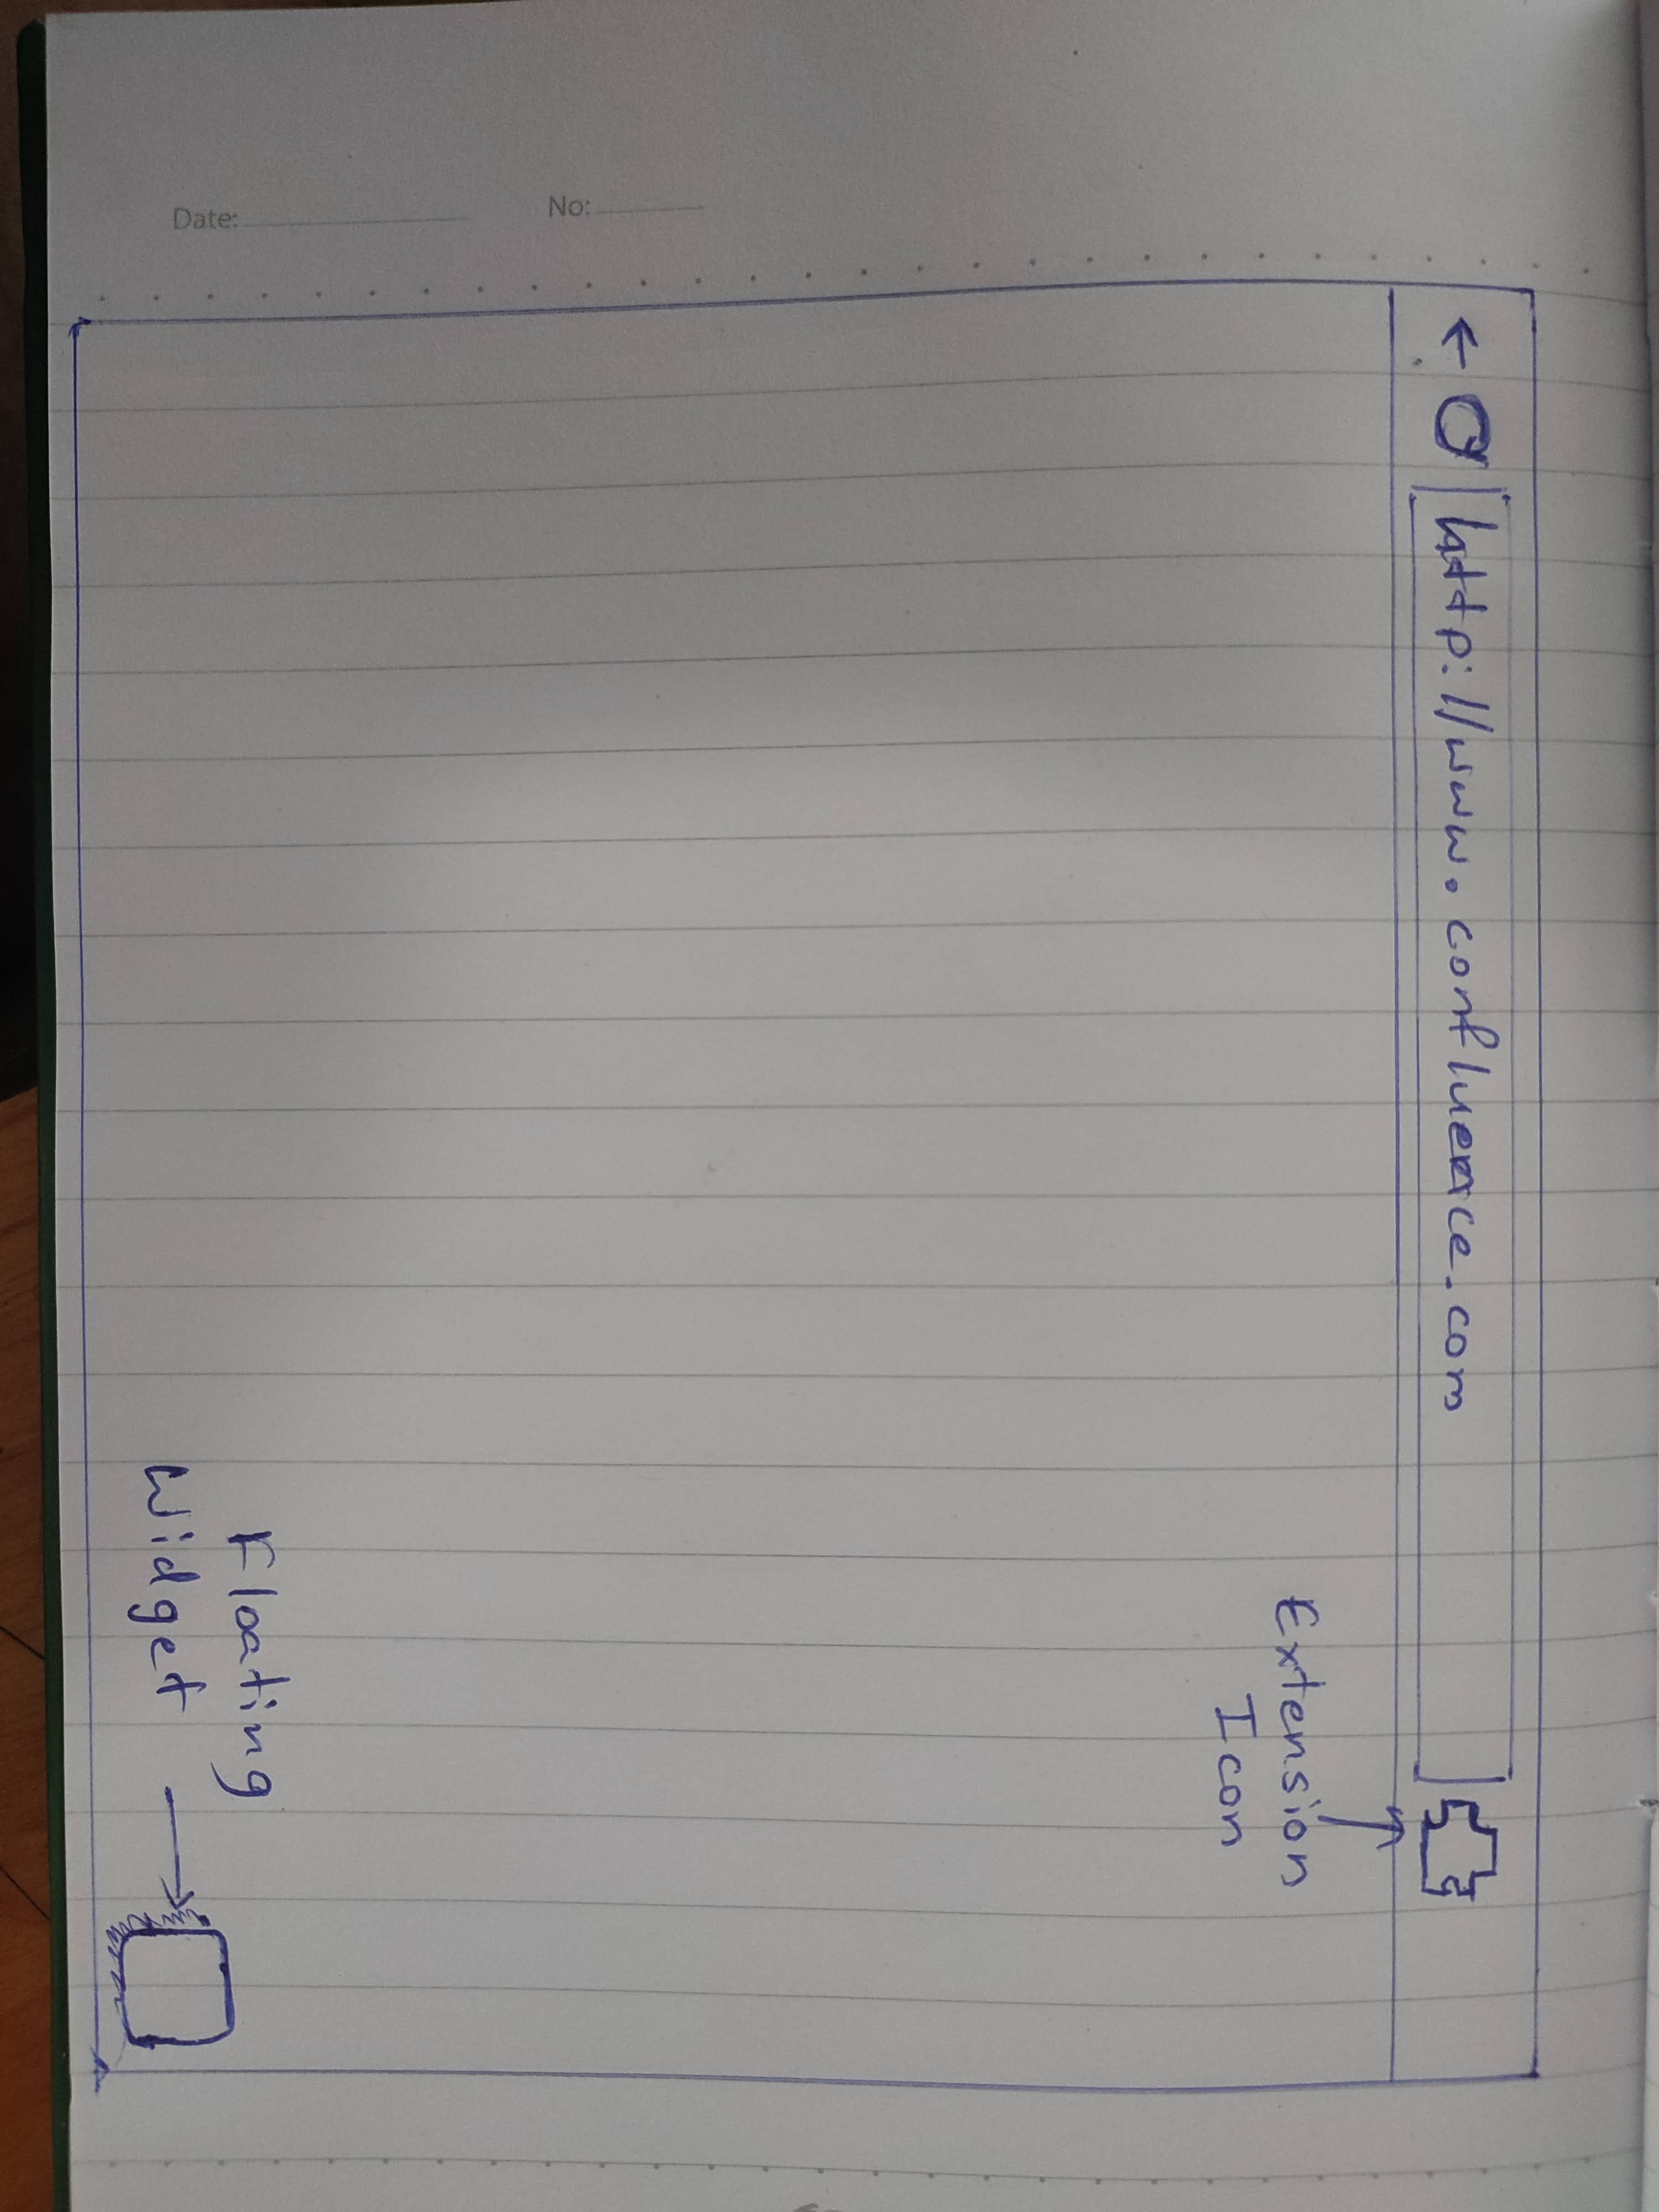 http://www.confluence.com
Extension
Icon
Floating
Widget
No:
Date: